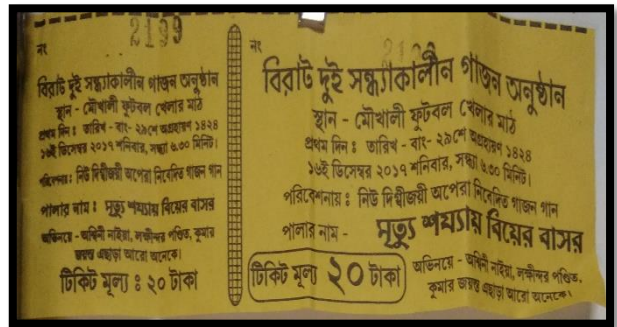 2199
নং
বিরাট দুই সন্ধ্যাকালীন গাজন অনুষ্ঠান
স্থান - মৌখালী ফুটবল খেলার মাঠ
প্রথম দিন : তারিখ - বাং- ২৯শে অগ্রহায়ণ ১৪২৪
১৬ই ডিসেম্বর ২০১৭ শনিবার, সন্ধ্যা ৬.৩০ মিনিট।
পরিবেশনায় : নিউ দিগ্বীজয়ী অপেরা নিবেদিত গাজন গান
পালার নাম : মৃত্যু শয্যায় বিয়ের বাসর
অভিনয়ে - অশ্বিনী নাইয়া, লক্ষ্মীন্দর পণ্ডিত, কুমার
জয়ন্ত এছাড়া আরো অনেকে।
টিকিট মূল্য : ২০ টাকা
নং
বিরাট দুই সন্ধ্যাকালীন গাজন অনুষ্ঠান
স্থান - মৌখালী ফুটবল খেলার মাঠ
প্রথম দিন : তারিখ - বাং- ২৯শে অগ্রহায়ণ ১৪২৪
১৬ই ডিসেম্বর ২০১৭ শনিবার, সন্ধ্যা ৬.৩০ মিনিট।
পরিবেশনায় : নিউ দিগ্বীজয়ী অপেরা নিবেদিত গাজন গান
পালার নাম - মৃত্যু শয্যায় বিয়ের বাসর
টিকিট মূল্য ২০ টাকা
অভিনয়ে - অশ্বিনী নাইয়া, লক্ষ্মীন্দর পণ্ডিত,
কুমার জয়ন্ত এছাড়া আরো অনেকে।